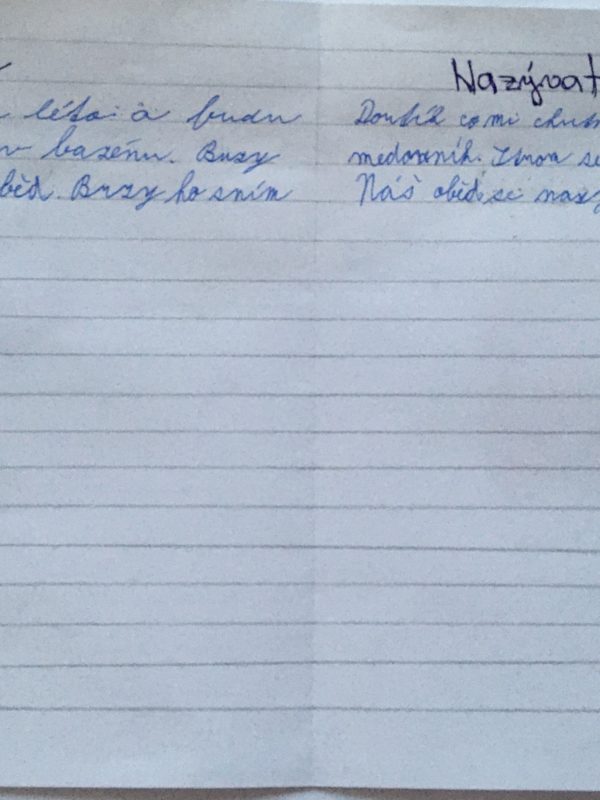 léto a budu
v bazénu. Brzy
běd. Brzy ho sním
Nazývat
co mi chutn
medovník. se
Náš oběd se nazý